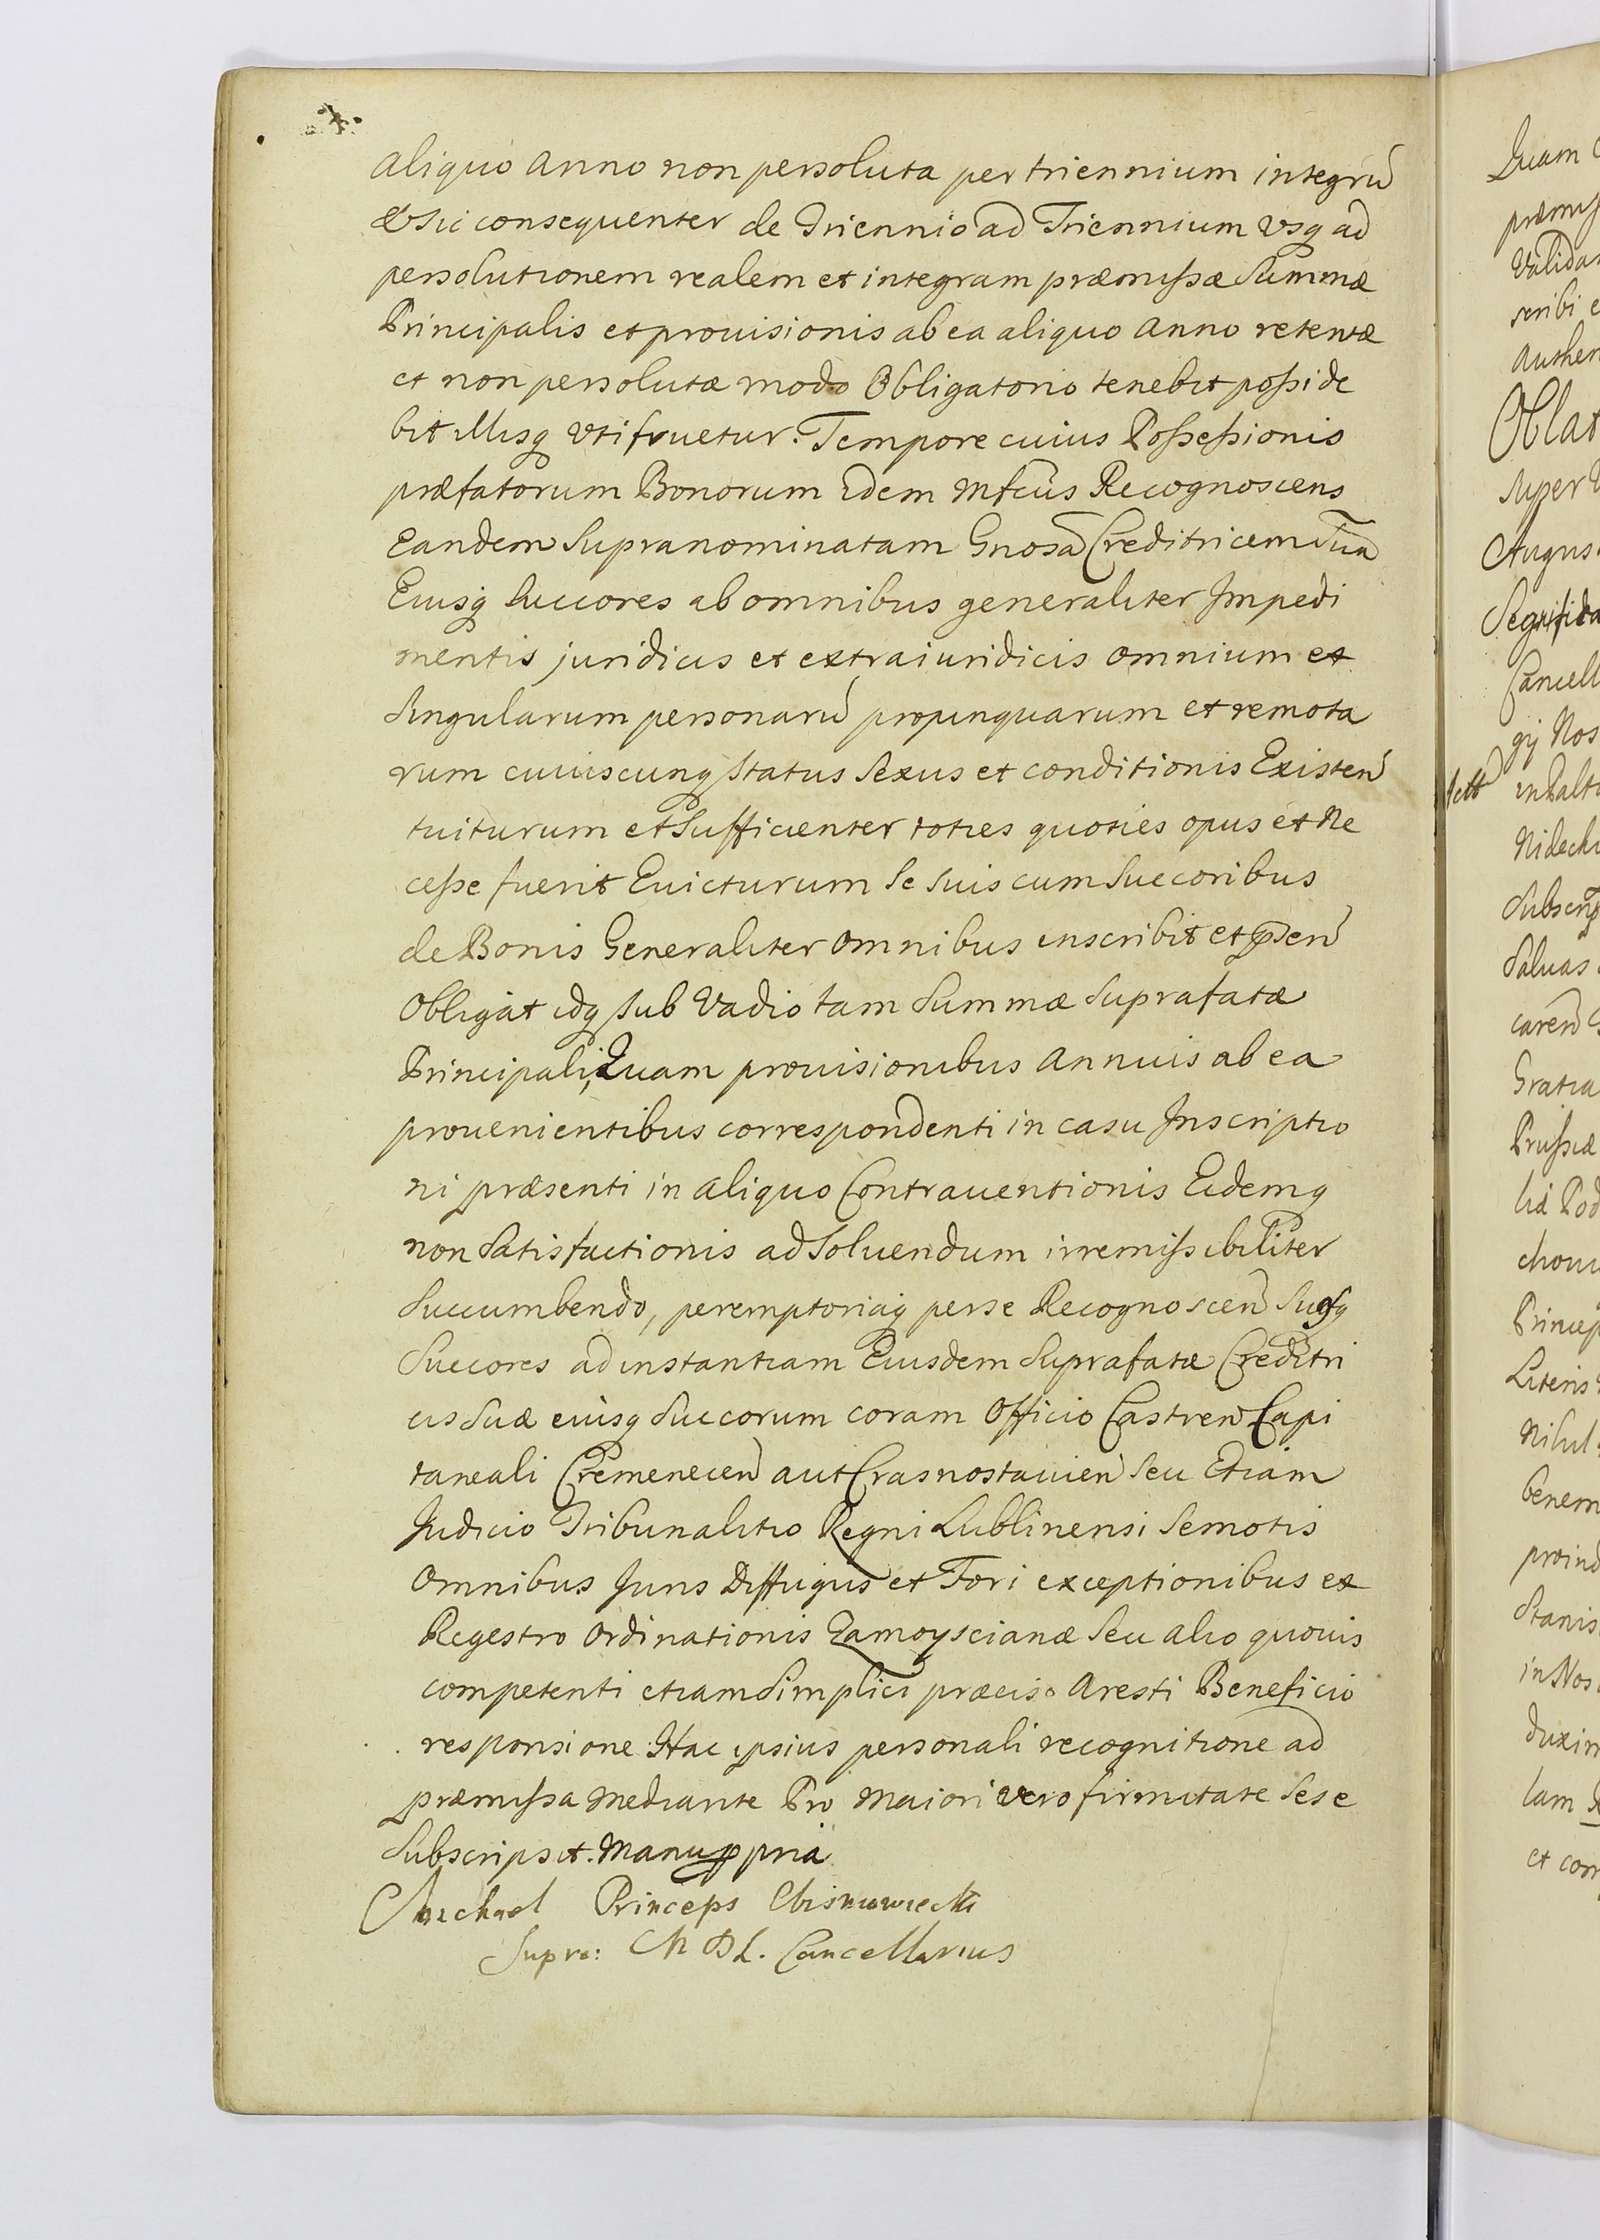 aliquo anno non persoluta per triennium integrũ
& sic consequenter de Triennio ad Triennium Vsq ad
persolutionem realem et integram præmissæ Summæ
Principalis et prouisionis ab ea aliquo anno retentæ
et non persolutæ modo Obligatorio tenebit posside
bit illisq Vtifruetur. Tempore cuius Possessionis
præfatorum Bonorum Idem Mfcus Recognoscens
Eandem Supranominatam Gnosã Creditricem Suã
Eiusq Succores ab omnibus generaliter Impedi
mentis juridicis et extraiuridicis omnium et
Singularum personarũ propinquarum et remota
rum cuiuscunq Status Sexus et conditionis Existeñ
tuiturum et Sufficienter toties quoties opus et Ne
cesse fuerit Euicturum Se Suis cum Succoribus
de Bonis Generaliter omnibus inscribit et
Obligat idq sub Vadio tam Summæ Suprafatæ
Principali, Quam prouisionibus Annuis ab ea
prouenientibus correspondenti in casu Inscriptio
ni præsenti in aliquo Contrauentionis Eidemq
non Satisfactionis ad Soluendum irremissibiliter
Succumbendo, peremptoriaq per se Recognosceñ Suosq
Succores ad instantiam Eiusdem Suprafatæ Creditri
cis Suæ eiusq Succorum coram Officio Castreñ Capi
taneali Cremeneceñ aut Crasnostauieñ Seu Etiam
Judicio Tribunalitio Regni Lublinensi Semotis
Omnibus Juris Diffugijs et Fori exceptionibus ex
Regestro Ordinationis Zamoyscianæ Seu alio quouis
competenti etiam Simplici præciso Aresti Beneficio
responsione. Hac ipsius personali recognitione ad
præmissa mediante Pro Maiori vero firmitate Sese
Subscripsit. Manu ppria
Michael Princeps Wisniowiecki
Supre: M D L. Cancellarius
Quam
Valida
scribi e
authen
Oblat
Super
August
Cancell
gij Nos
in Palt
Subscrip
Saluas
careñ
Gratia
Prussiæ
liæ Pod
chou
Princep
Literis
Nihil
benem
proind
Stanis
in Nos
duxim
lam
et corr